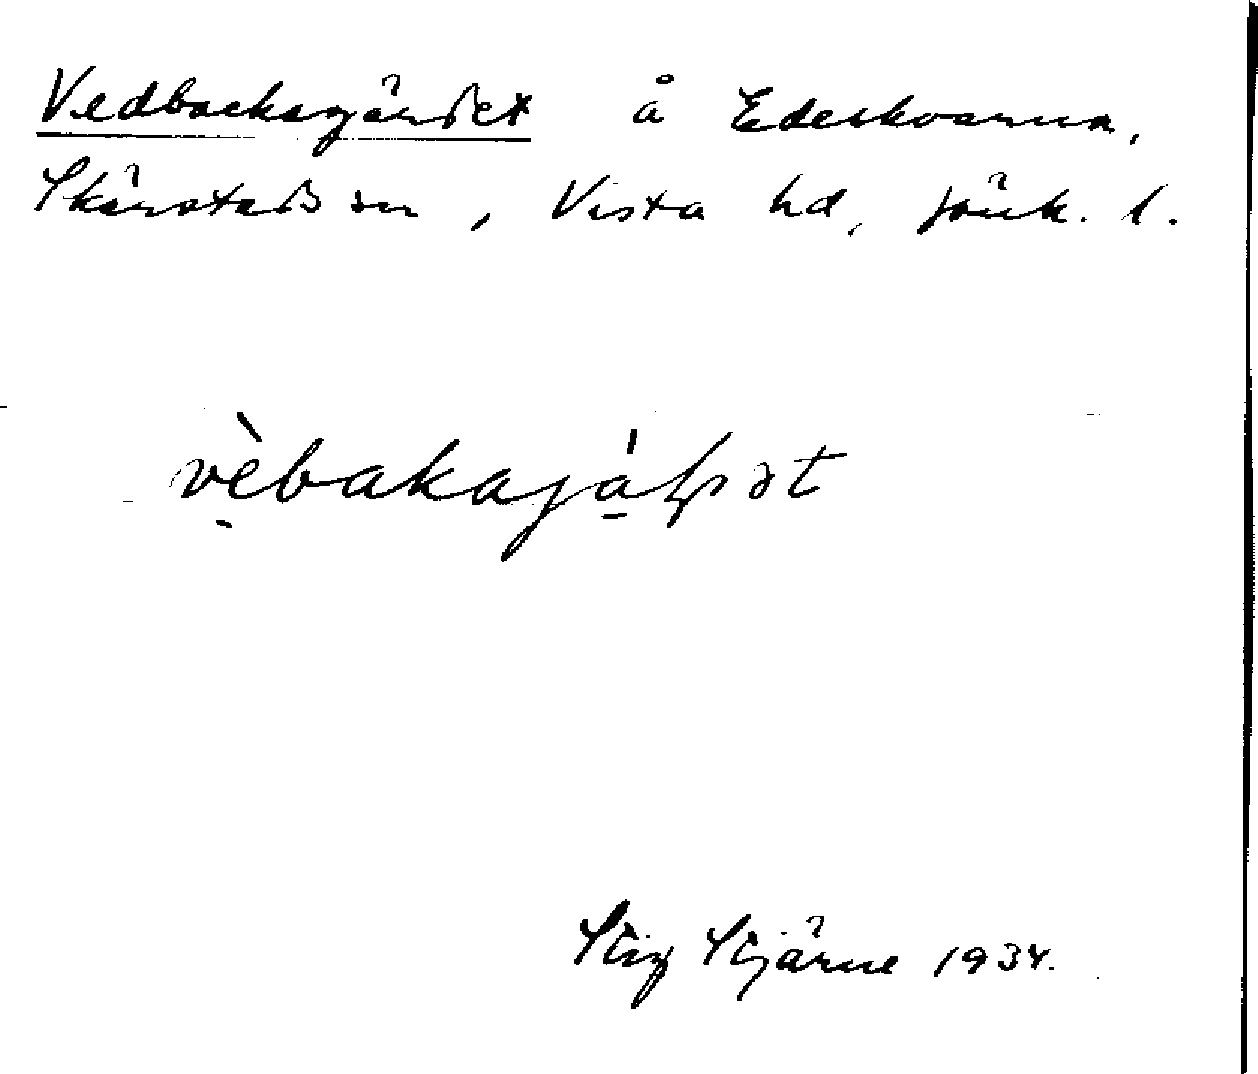 Vedbacksgärdet å Ederkvarna,
Skärstads sn, Vista hd, Jönk. l.
Stig Stjärne 1934.